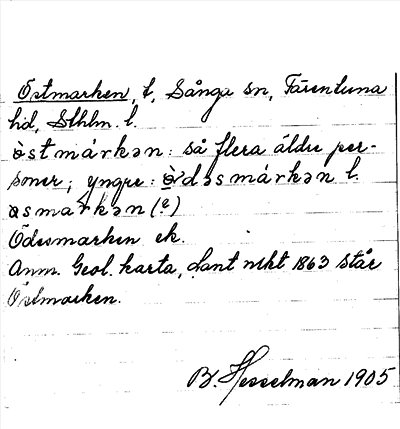 Östmarken, t, Sånga sn, Färentuna
hd, Sthlm. l.
òstmárkən: så flera äldre per-
soner; yngre: òdəsmárkən l.
òsmarkən (?)
Ödesmarken ek.
Anm. Geol. karta, Lantmkt 1863 står
Östmarken.
B. Hesselman 1905